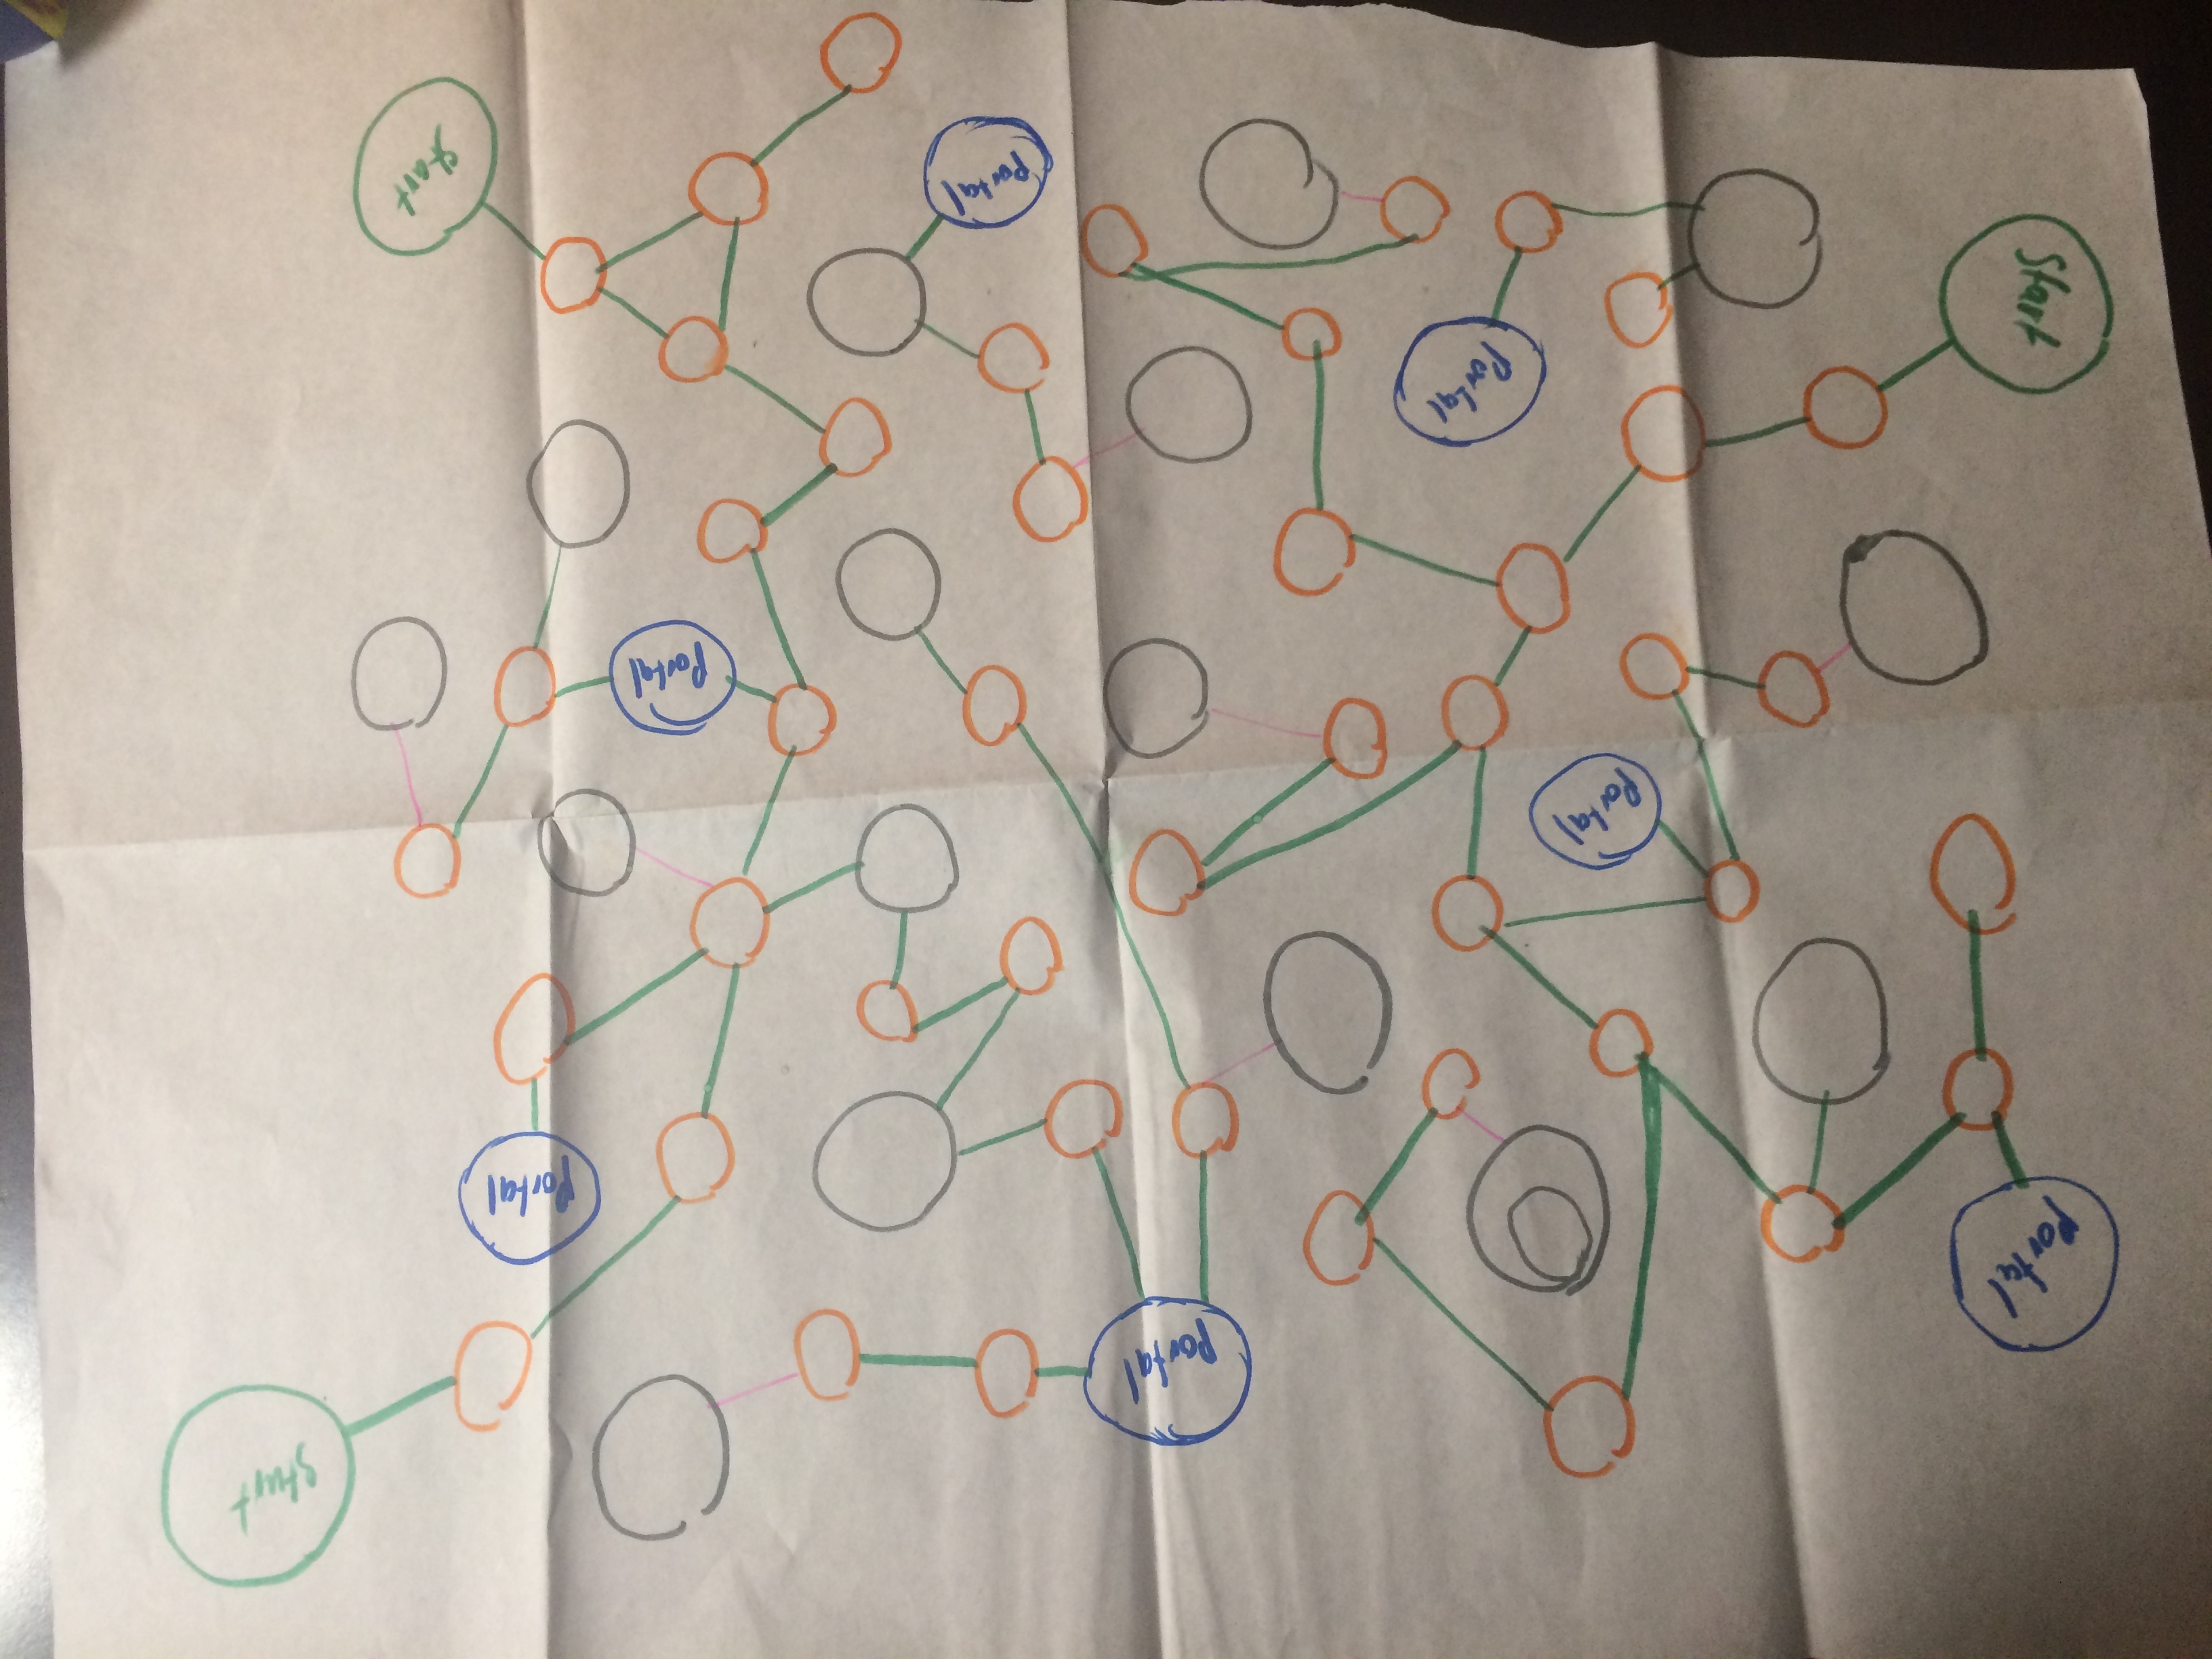 Start
Portal
Portal
Portal
Portal
Portal
Portal
Start
Portal
Start